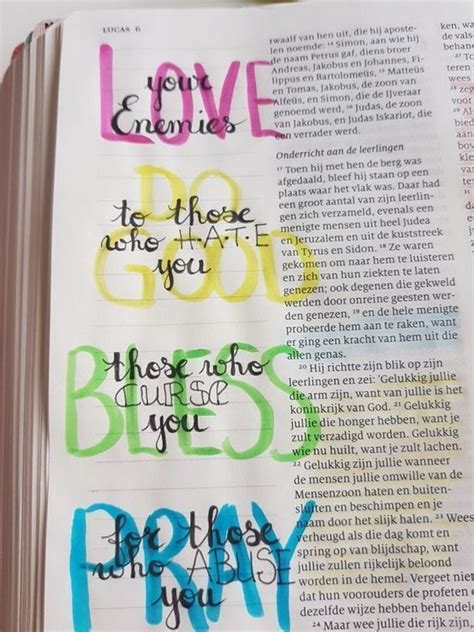 LUCAS 6
LOVE
your
Enemies
DO
to those
who H·A·T·E
GOOD
you
those who
BLESS
CURSE
you
for those
PRAY
who ABUSE
you
twaalf van hen uit, die hij aposte-
len noemde: 14 Simon, aan wie hij
de naam Petrus gaf, diens broer
Andreas, Jakobus en Johannes, Fi-
lippus en Bartolomeüs, 15 Matteüs
en Tomas, Jakobus, de zoon van
Alfeüs, en Simon, die de IJveraar
genoemd werd, 16 Judas, de zoon
van Jakobus, en Judas Iskariot, die
een verrader werd.
Onderricht aan de leerlingen
17 Toen hij met hen de berg was
afgedaald, bleef hij staan op een
plaats waar het vlak was. Daar had
een groot aantal van zijn leerlin-
gen zich verzameld, evenals een
menigte mensen uit heel Judea
en Jeruzalem en uit de kuststreek
van Tyrus en Sidon. 18 Ze waren
gekomen om naar hem te luisteren
en zich van hun ziekten te laten
genezen; ook degenen die gekweld
werden door onreine geesten wer-
den genezen, 19 en de hele menigte
probeerde hem aan te raken, want
er ging een kracht van hem uit die
allen genas.
20 Hij richtte zijn blik op zijn
leerlingen en zei: 'Gelukkig jullie
die arm zijn, want van jullie is het
koninkrijk van God. 21 Gelukkig
jullie die honger hebben, want je
zult verzadigd worden. Gelukkig
wie nu huilt, want je zult lachen.
22 Gelukkig zijn jullie wanneer
de mensen jullie omwille van de
Mensenzoon haten en buiten-
sluiten en beschimpen en je
naam door het slijk halen. 23 Wees
verheugd als die dag komt en
spring op van blijdschap, want
jullie zullen rijkelijk beloond
worden in de hemel. Vergeet niet
dat hun voorouders de profeten
dezelfde wijze hebben behandeld
24 Maar wee jullie die rijk zijn,